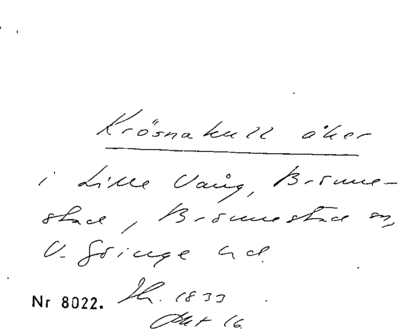 Krösnakull åker
i Lille Vång, Brönne-
stad, Brönnestad sn,
V. Göinge hd.
Nr 8022. Sk. 1833
Akt 16